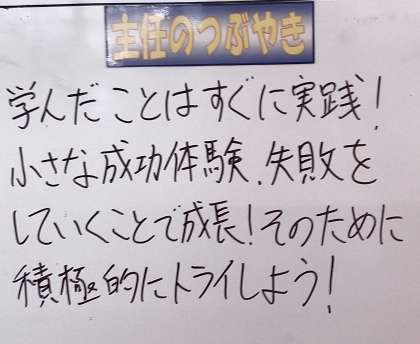 主任のつぶやき
学んだことはすぐに実践!
小さな成功体験、失敗を
していくことで成長!そのために
積極的にトライしよう!